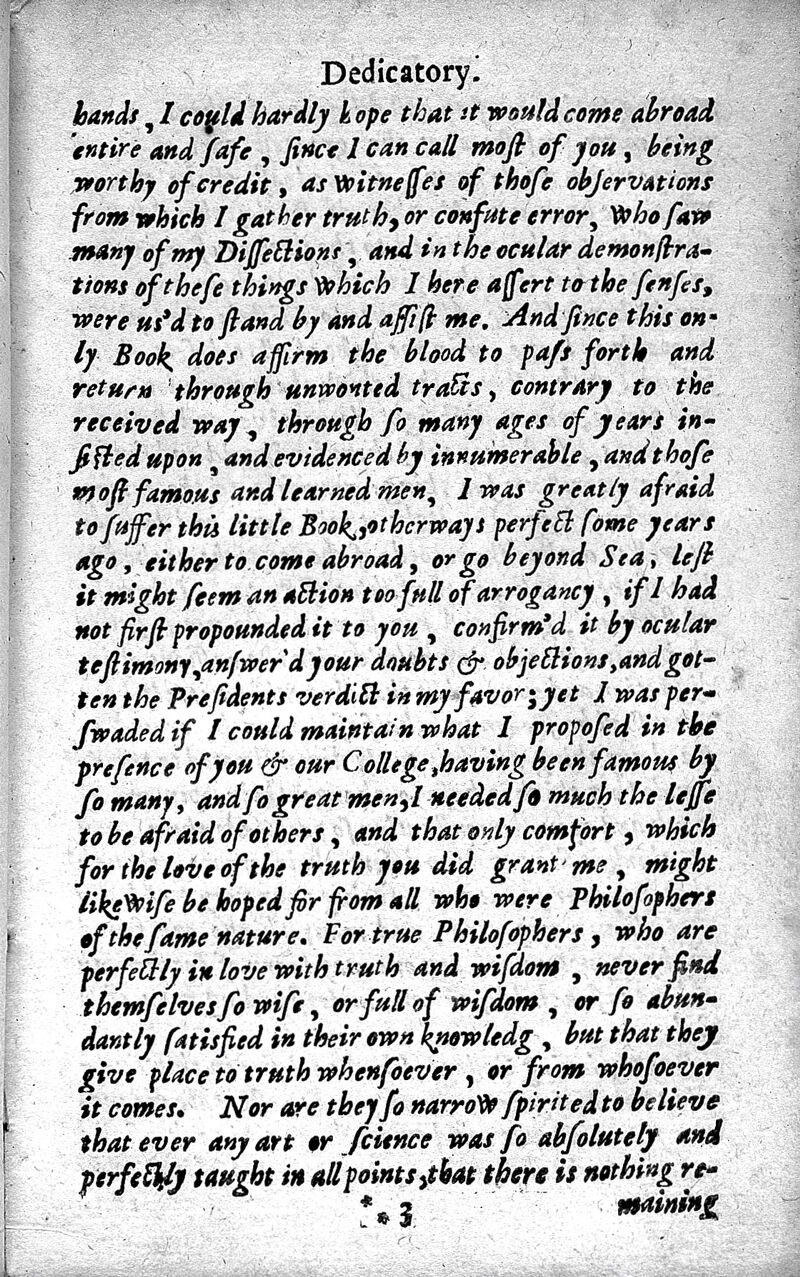 Dedicatory.
hands, I could hardly hope that it would come abroad
entire and ſafe, ſince I can call moſt of you, being
worthy of credit, as witneſſes of thoſe obſervations
from which I gather truth, or confute error, who ſaw
many of my Diſſections, and in the ocular demonſtra-
tions of theſe things which I here aſſert to the ſenſes,
were us'd to ſtand by and aſſiſt me. And ſince this on-
ly Book does affirm the blood to paſs forth and
return through unwonted tracts, contrary to the
received way, through ſo many ages of years in-
ſiſted upon, and evidenced by innumerable, and thoſe
moſt famous and learned men, I was greatly afraid
to ſuffer this little Book, otherways perfect ſome years
ago, either to come abroad, or go beyond Sea, leſt
it might ſeem an action too full of arrogancy, if I had
not firſt propounded it to you, confirm'd it by ocular
teſtimony, anſwer'd your doubts & objections, and got-
ten the Preſidents verdict in my favor; yet I was per-
ſwaded if I could maintain what I propoſed in the
preſence of you & our College, having been famous by
ſo many, and ſo great men, I needed ſo much the leſſe
to be afraid of others, and that only comfort, which
for the love of the truth you did grant me, might
likewiſe be hoped for from all who were Philoſophers
of the ſame nature. For true Philoſophers, who are
perfectly in love with truth and wiſdom, never find
themſelves ſo wiſe, or full of wiſdom, or ſo abun-
dantly ſatisfied in their own knowledg, but that they
give place to truth whenſoever, or from whoſoever
it comes. Nor are they ſo narrow ſpirited to believe
that ever any art or ſcience was ſo abſolutely and
perfectly taught in all points, that there is nothing re-
** 3 maining